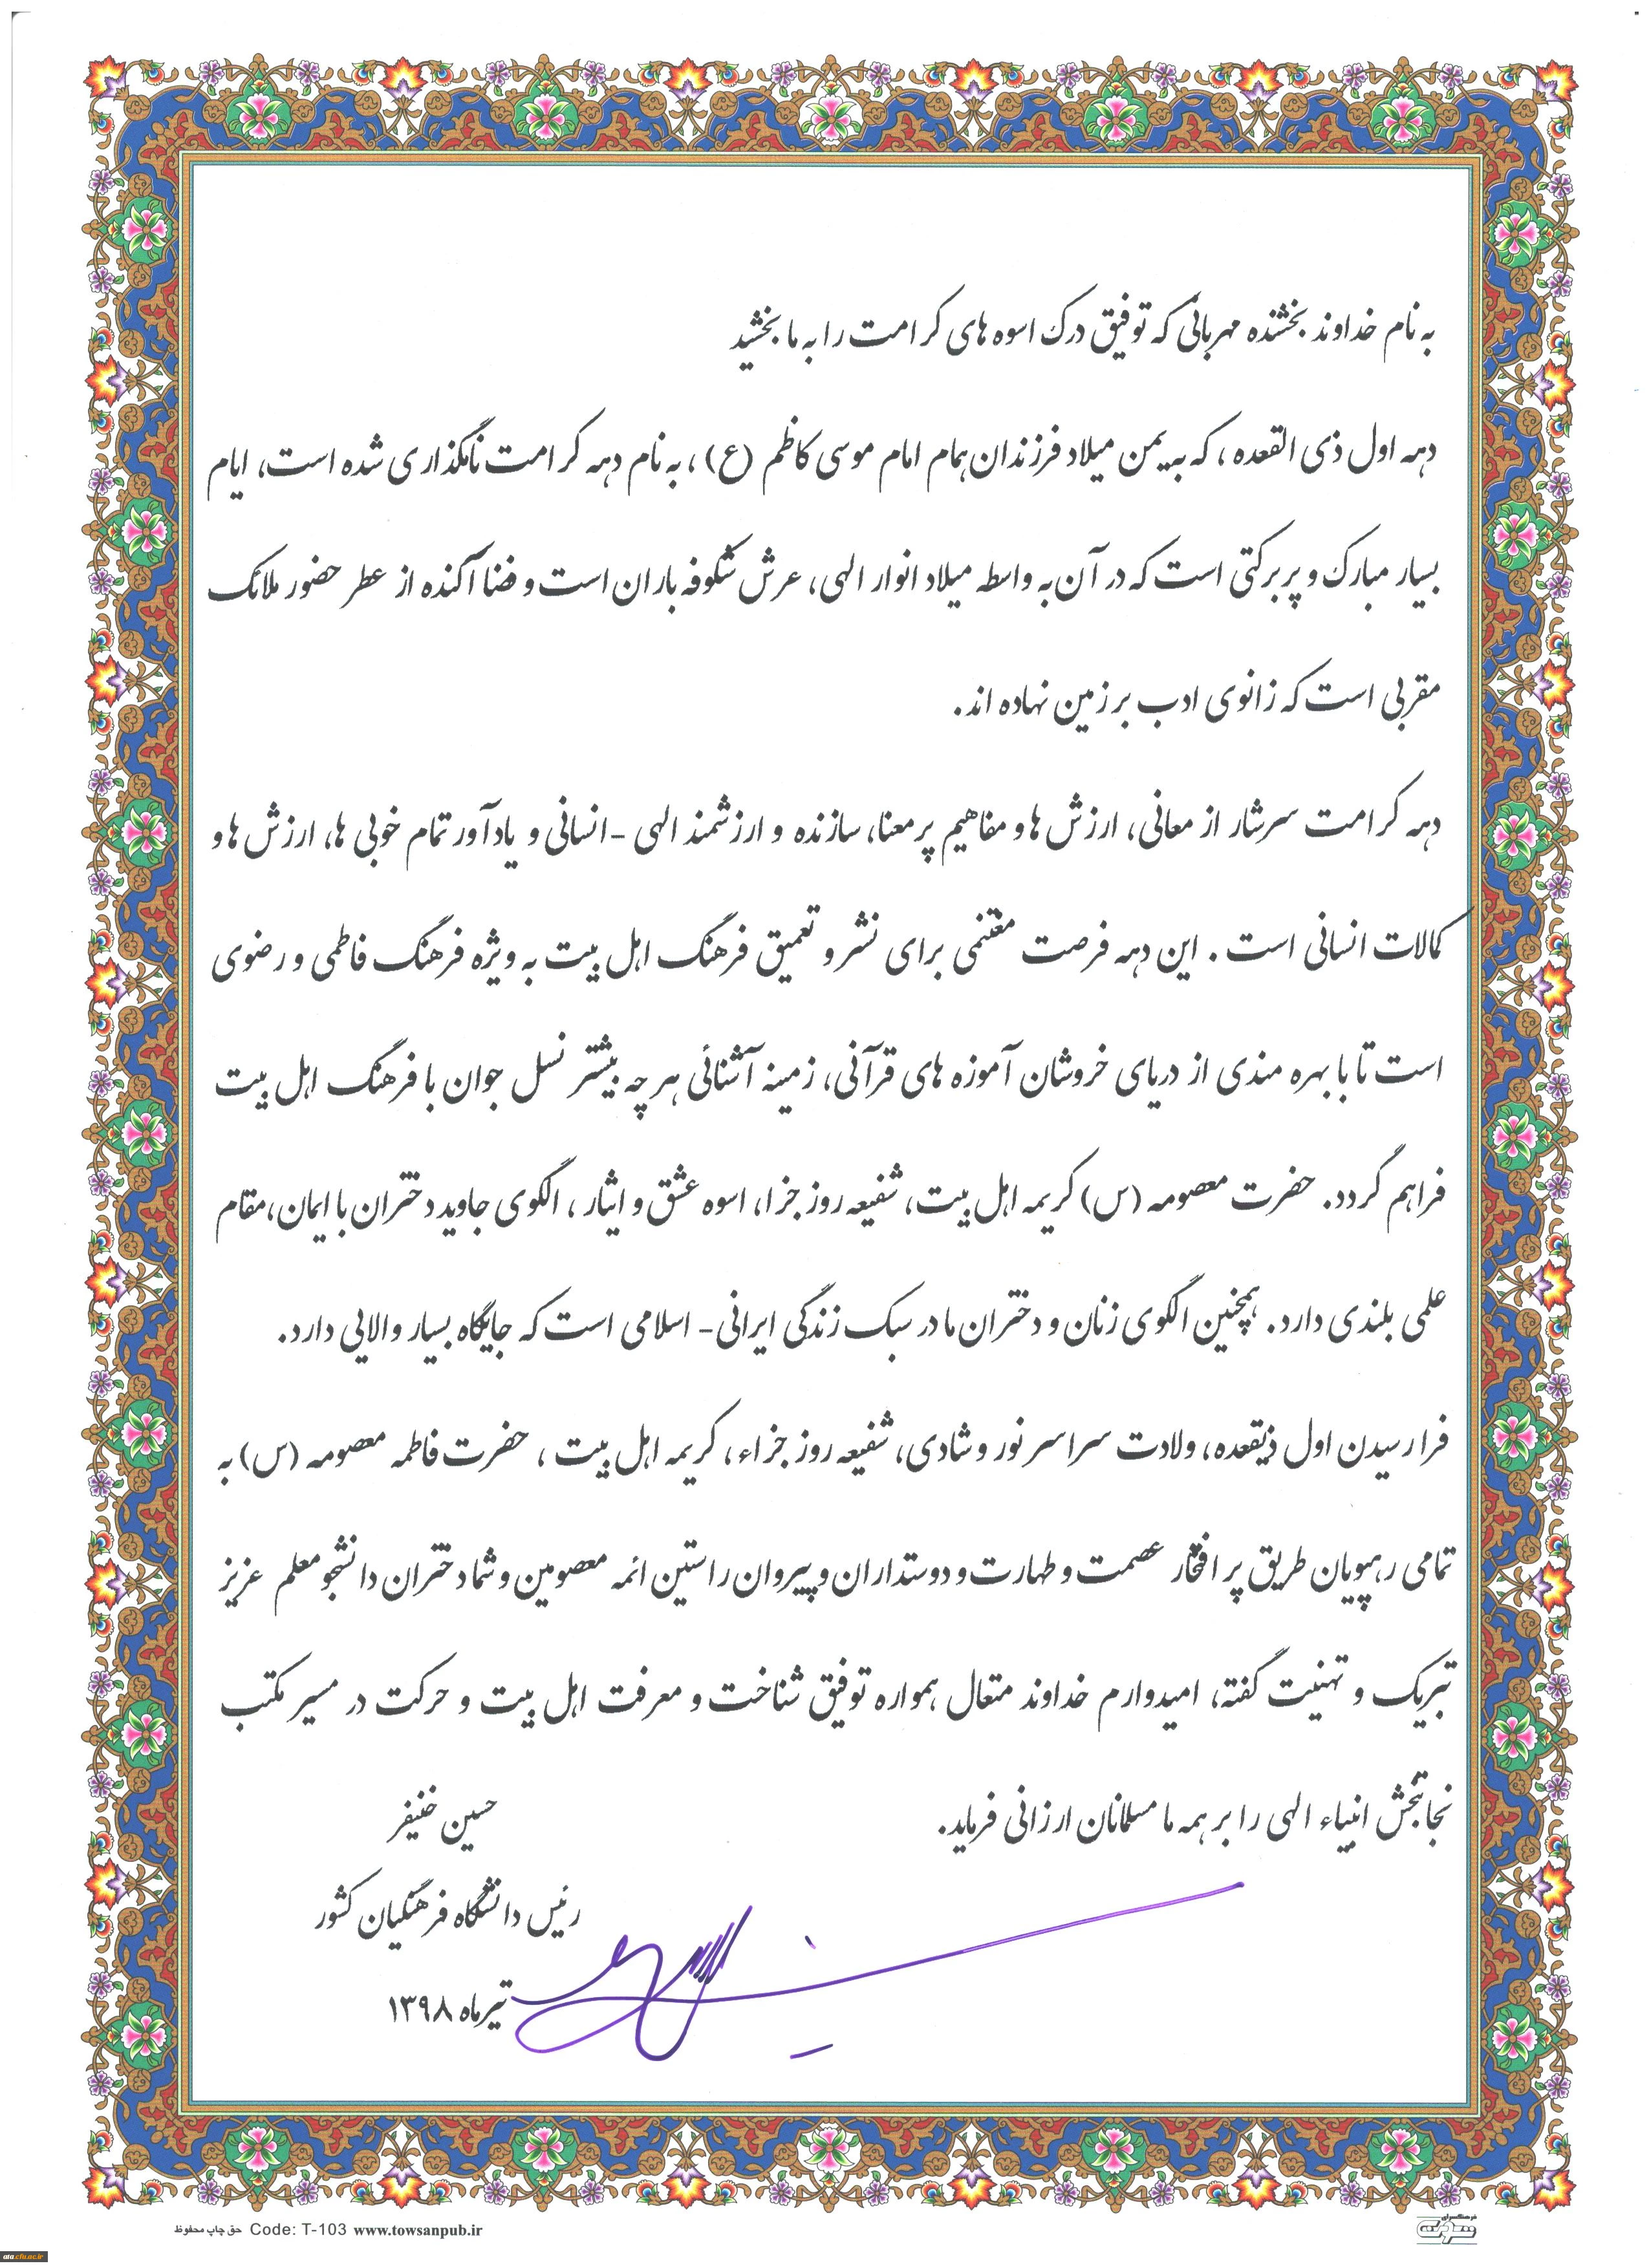 به نام خداوند بخشنده مهربانی که توفیق درک اسوه های کرامت را به ما بخشید
دهه اول ذی القعده، که به یمن میلاد فرزندان همام امام موسی کاظم (ع)، به نام دهه کرامت نامگذاری شده است، ایام
بسیار مبارک و پربرکتی است که در آن به واسطه میلاد انوار الهی، عرش شکوفه باران است و فضا آکنده از عطر حضور ملائک
مقربی است که زانوی ادب بر زمین نهاده اند.
دهه کرامت سرشار از معانی، ارزش ها و مفاهیم پر معنا، سازنده و ارزشمند الهی -انسانی و یادآور تمام خوبی ها، ارزش ها و
کمالات انسانی است. این دهه فرصت مغتنمی برای نشر و تعمیق فرهنگ اهل بیت به ویژه فرهنگ فاطمی و رضوی
است تا با بهره مندی از دریای خروشان آموزه های قرآنی، زمینه آشنائی هر چه بیشتر نسل جوان با فرهنگ اهل بیت
فراهم گردد. حضرت معصومه (س) کریمه اهل بیت، شفیعه روز جزا، اسوه عشق و ایثار، الگوی جاوید دختران با ایمان، مقام
علمی بلندی دارد. همچنین الگوی زنان و دختران ما در سبک زندگی ایرانی- اسلامی است که جایگاه بسیار والایی دارد.
فرا رسیدن اول ذیقعده، ولادت سراسر نور و شادی، شفیعه روز جزاء، کریمه اهل بیت، حضرت فاطمه معصومه (س) به
تمامی رهپویان طریق پر افتخار عصمت و طهارت و دوستداران و پیروان راستین ائمه معصومین و شما دختران دانشجو معلم عزیز
تبریک و تهنیت گفته، امیدوارم خداوند متعال همواره توفیق شناخت و معرفت اهل بیت و حرکت در مسیر مکتب
نجاتبخش انبیاء الهی را بر همه ما مسلمانان ارزانی فرماید.
حسین خنیفر
رئیس دانشگاه فرهنگیان کشور
تیرماه ۱۳۹۸
حق چاپ محفوظ Code: T-103 www.towsanpub.ir
ata.cfu.ac.ir